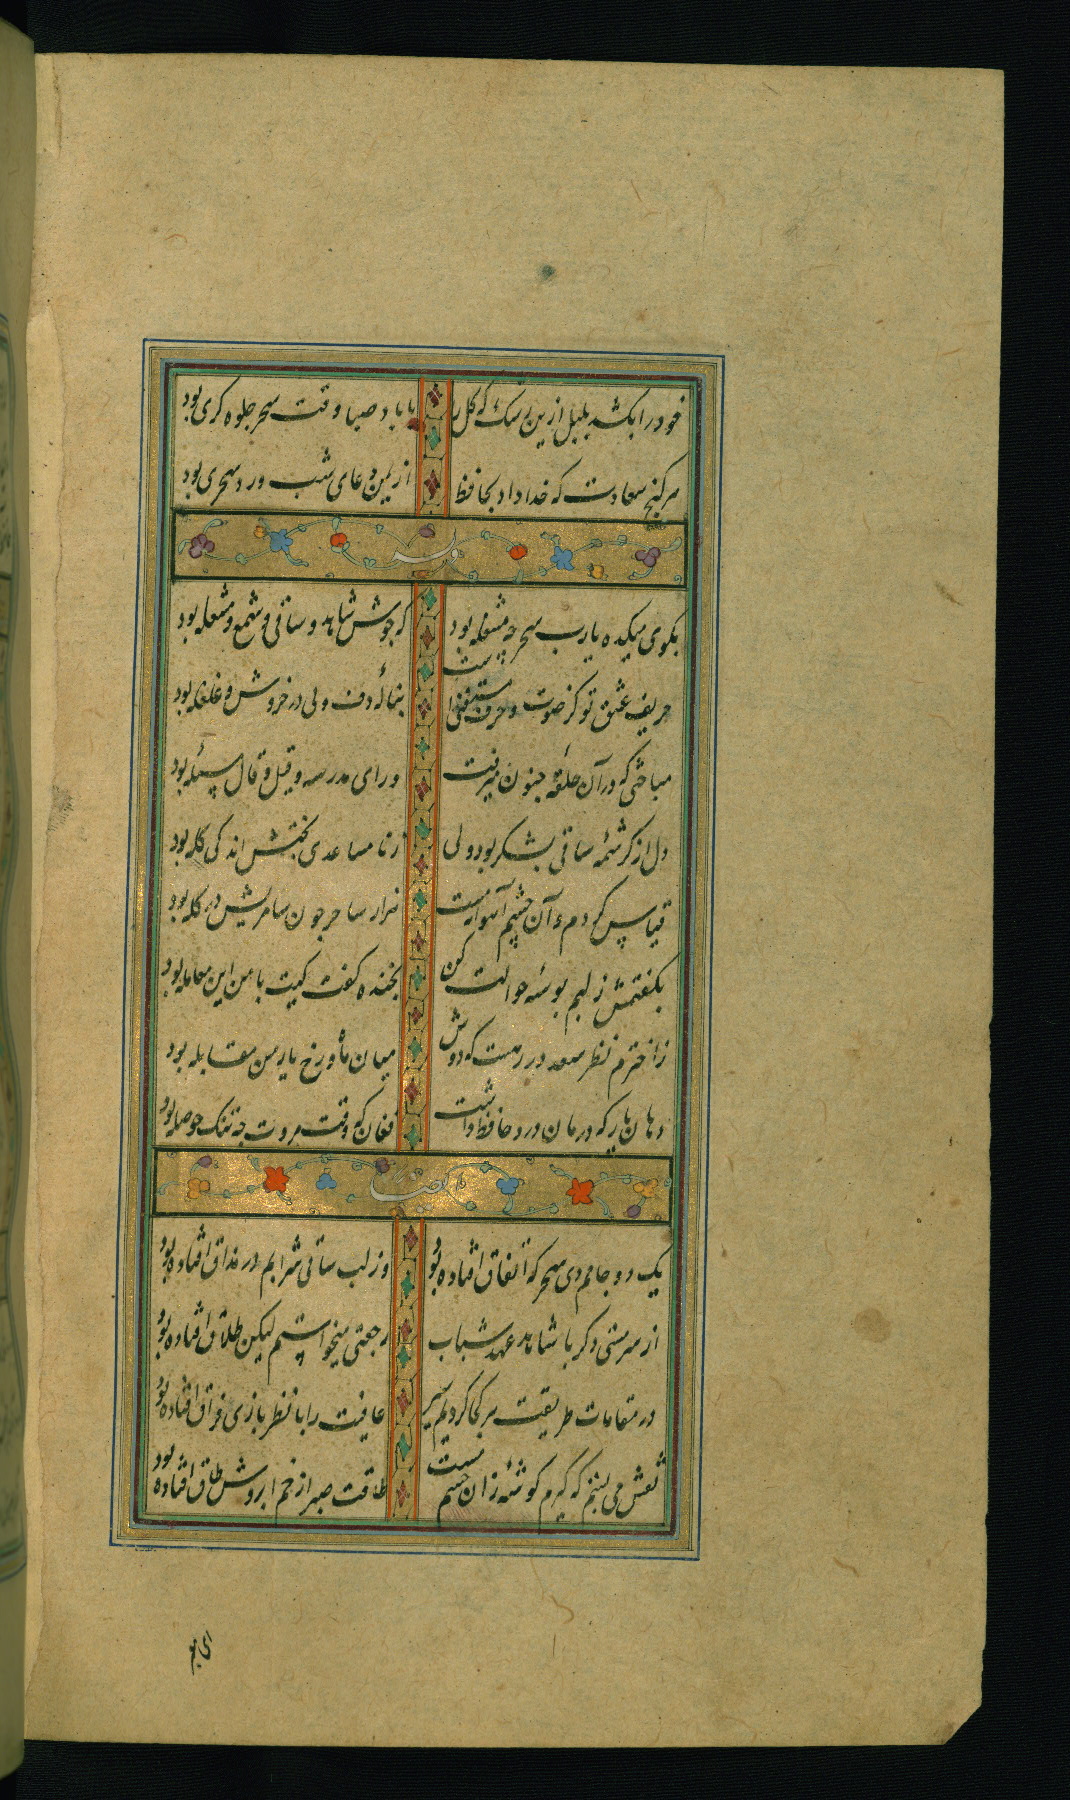 خود را بکشد بلبل ازین رشک که گل را با باد صبا وقت سحر جلوه کری بود
هر کنج سعادت که خدا داد بحافظ از یمن دعای شب و ورد سحری بود
بکوی میکده یا رب سحر چه مشغله بود که جوش شاهد و ساقی و شمع و مشعله بود
حدیث عشق تو کز صوت و حرف مستغنی است بنالهٔ دف و نی در خروش و غلغله بود
مباحثی که در آن حلقهٔ جنون میرفت ورای مدرسه و قیل و قال مسئله بود
دل از کرشمهٔ ساقی بشکر بود ولی ز نامساعدی بختش اندکی کله بود
قیاس کردم و آن چشم آهوانه مست هزار ساحر چون سامریش در کله بود
بکفتمش ز لبم بوسهٔ حوالت کن بخنده کفت کیت با من این معامله بود
ز اخترم نظر سعد در رهست که دوش میان ماه و رخ یار من مقابله بود
دهان یار که درمان درد حافظ داشت فغان که وقت مروت چه تنک حوصله بود
یک دو جامم دی سحرکه اتفاق افتاده بود وز لب ساقی شرابم در مذاق افتاده بود
از سر مستی دکر با شاهد عهد شباب رجعتی میخواستم لیکن طلاق افتاده بود
در مقامات طریقت هر کجا کردیم سیر عافیت را با نظر بازی فراق افتاده بود
نقش می بستم که کیرم کوشهٔ زان چشم مست طاقت صبر از خم ابروش طاق افتاده بود